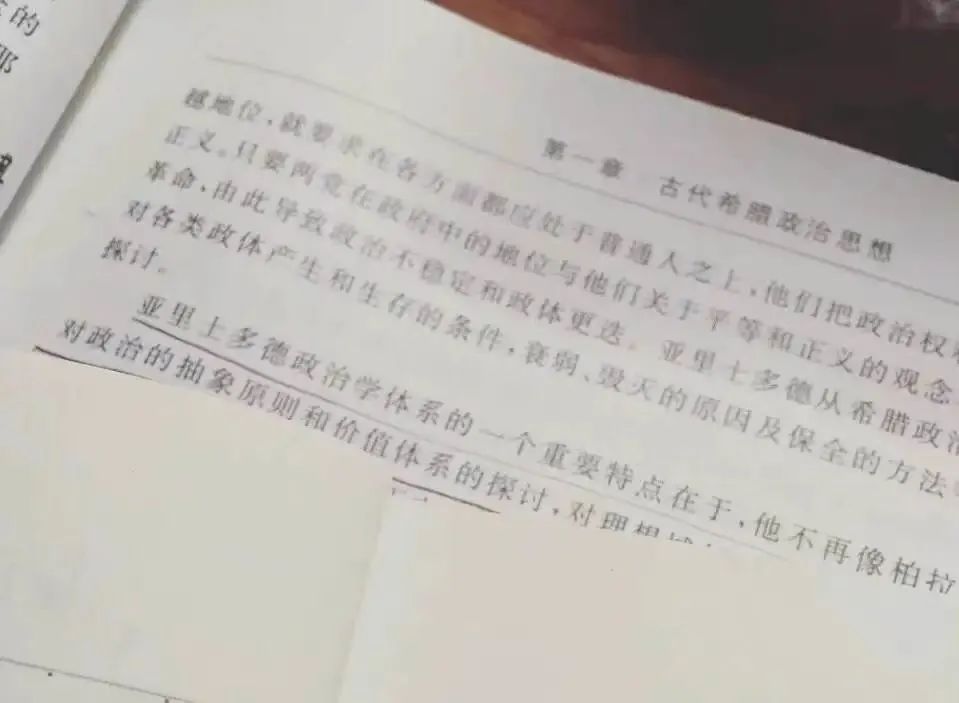 第一章 古代希腊政治思想
越地位，就要求在各方面都应处于普通人之上，他们把政治权
正义。只要两党在政府中的地位与他们关于平等和正义的观念
革命，由此导致政治不稳定和政体更迭。亚里士多德从希腊政治
对各类政体产生和生存的条件，衰弱、毁灭的原因及保全的方法
探讨。
亚里士多德政治学体系的一个重要特点在于，他不再像柏拉
对政治的抽象原则和价值体系的探讨，对理想
的
那